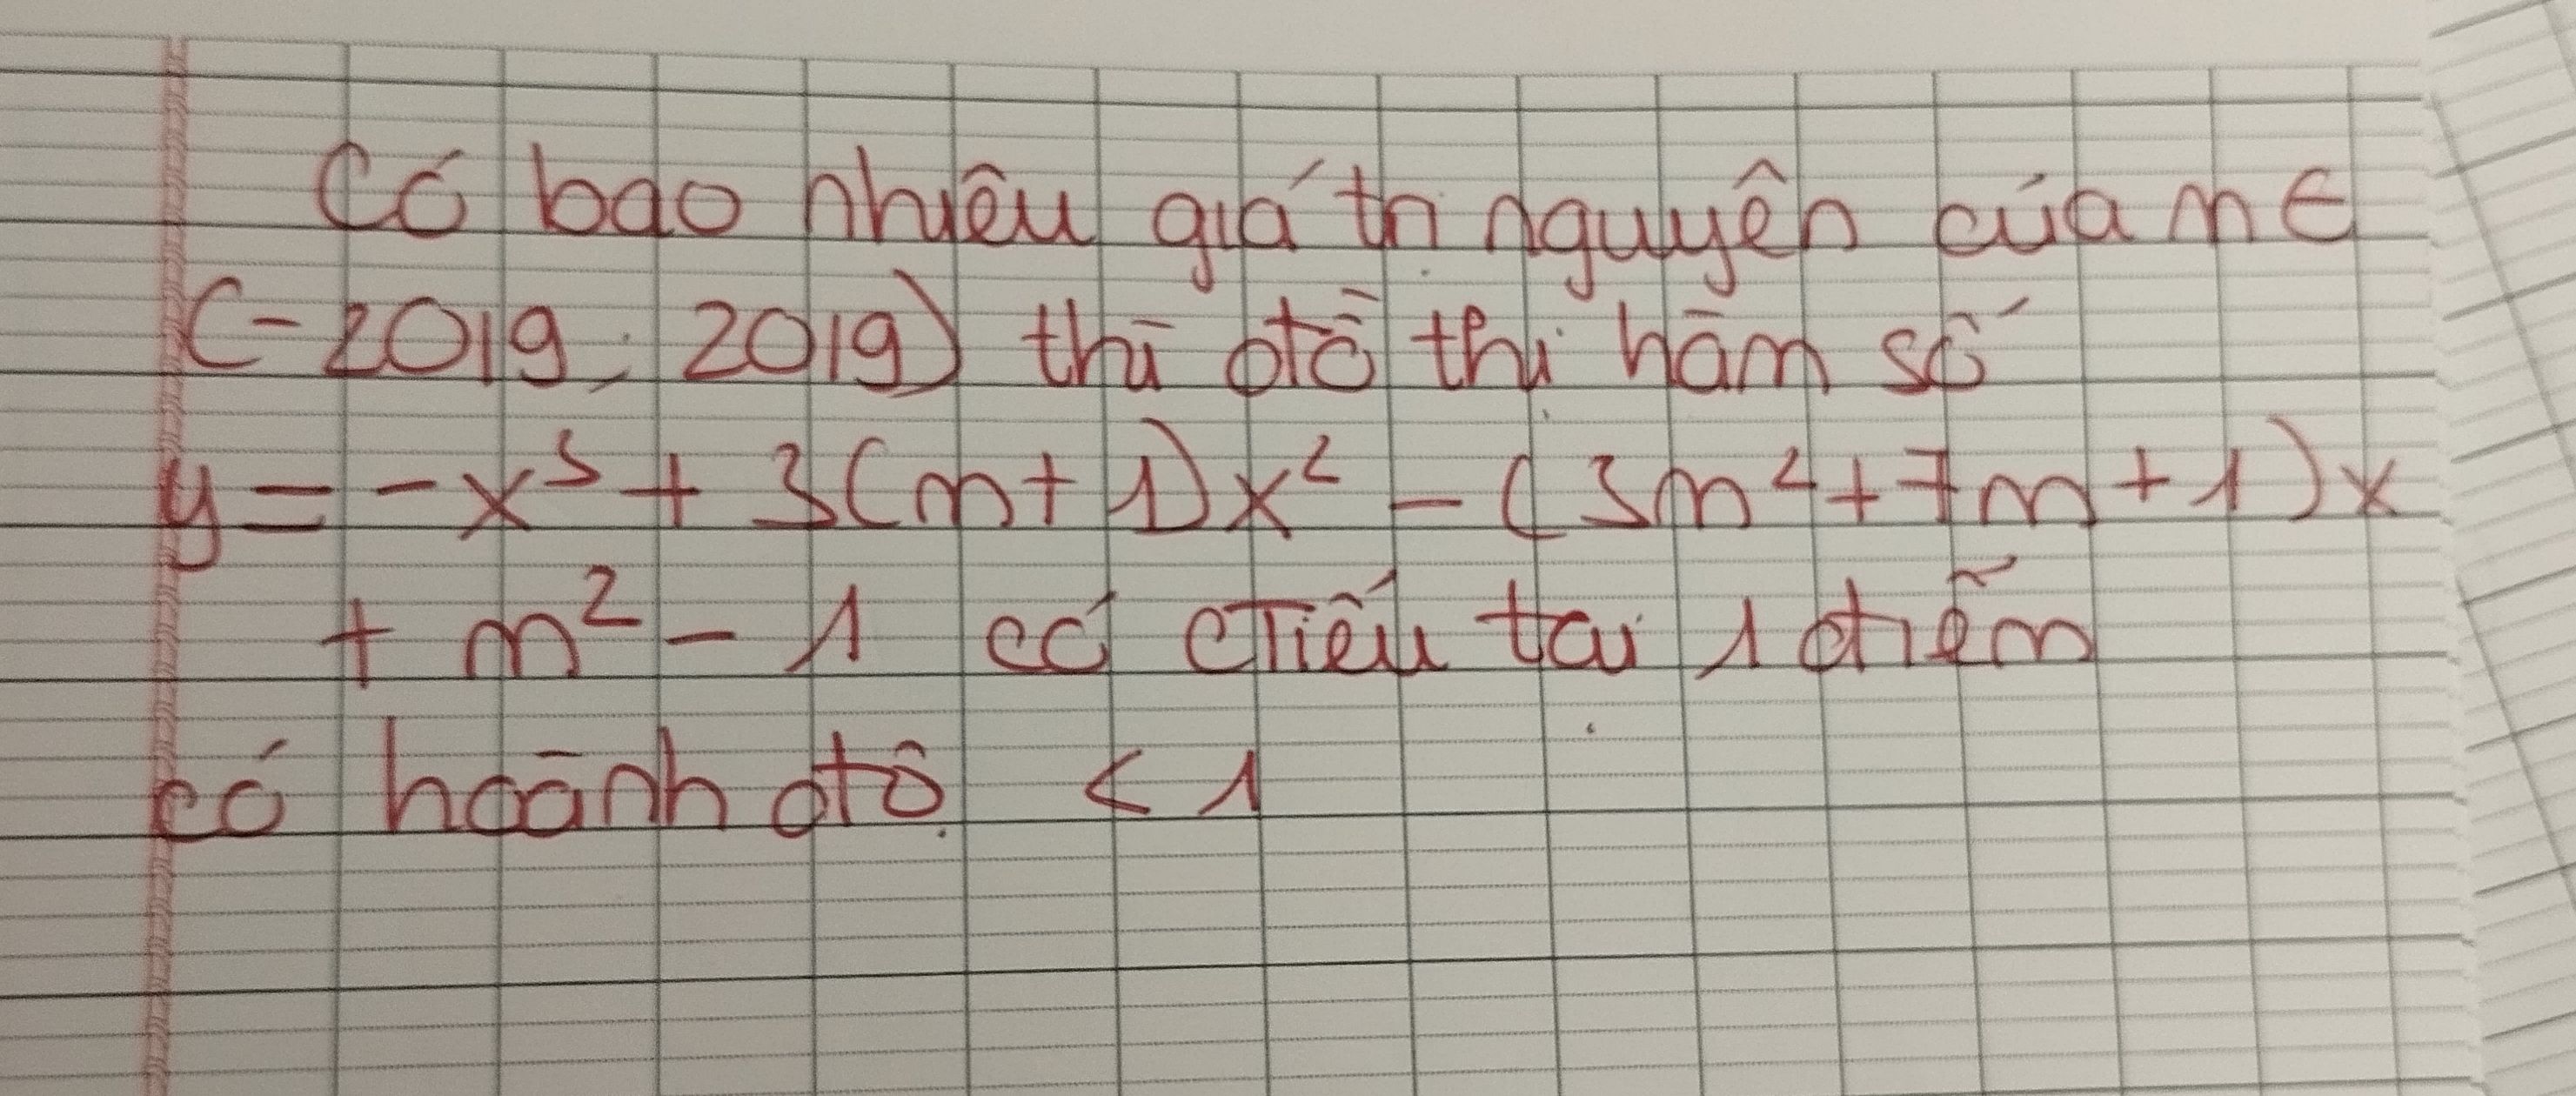 Có bao nhiêu giá trị nguyên của m ∈
(-2019; 2019) thì đồ thị hàm số
y = -x³ + 3(m+1)x² - (3m²+7m+1)x
+ m² - 1 có cTiểu tại 1 điểm
có hoành độ < 1